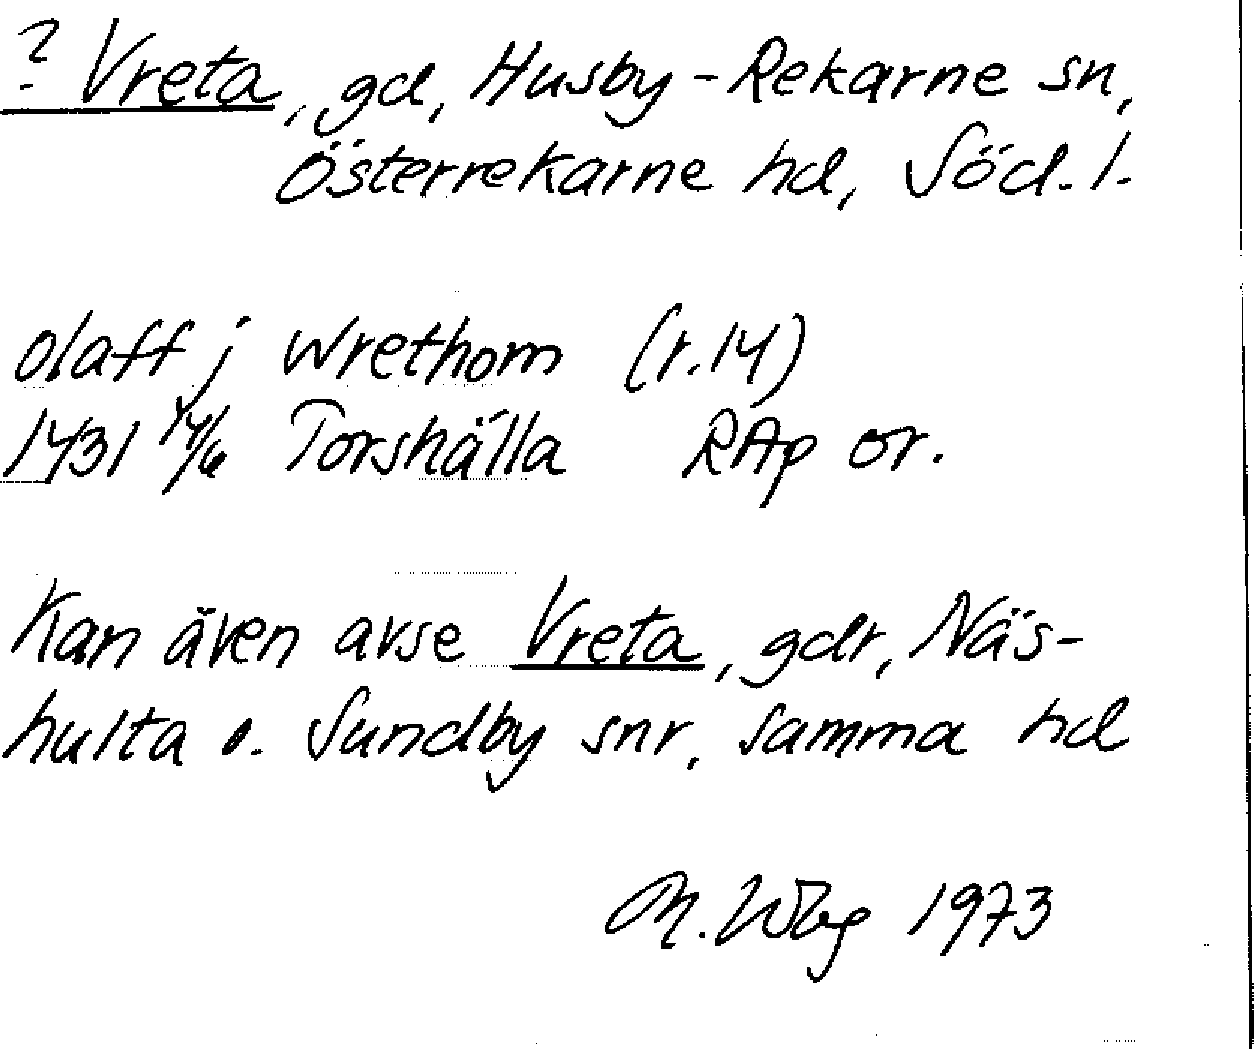 ? Vreta, gd, Husby-Rekarne sn,
Österrekarne hd, Söd. l.
olaff j wrethom (r.14)
1431 14/6 Torshälla RAp or.
Kan även avse Vreta, gdr, Näs-
hulta o. Sundby snr, samma hd
M. Wbg 1973